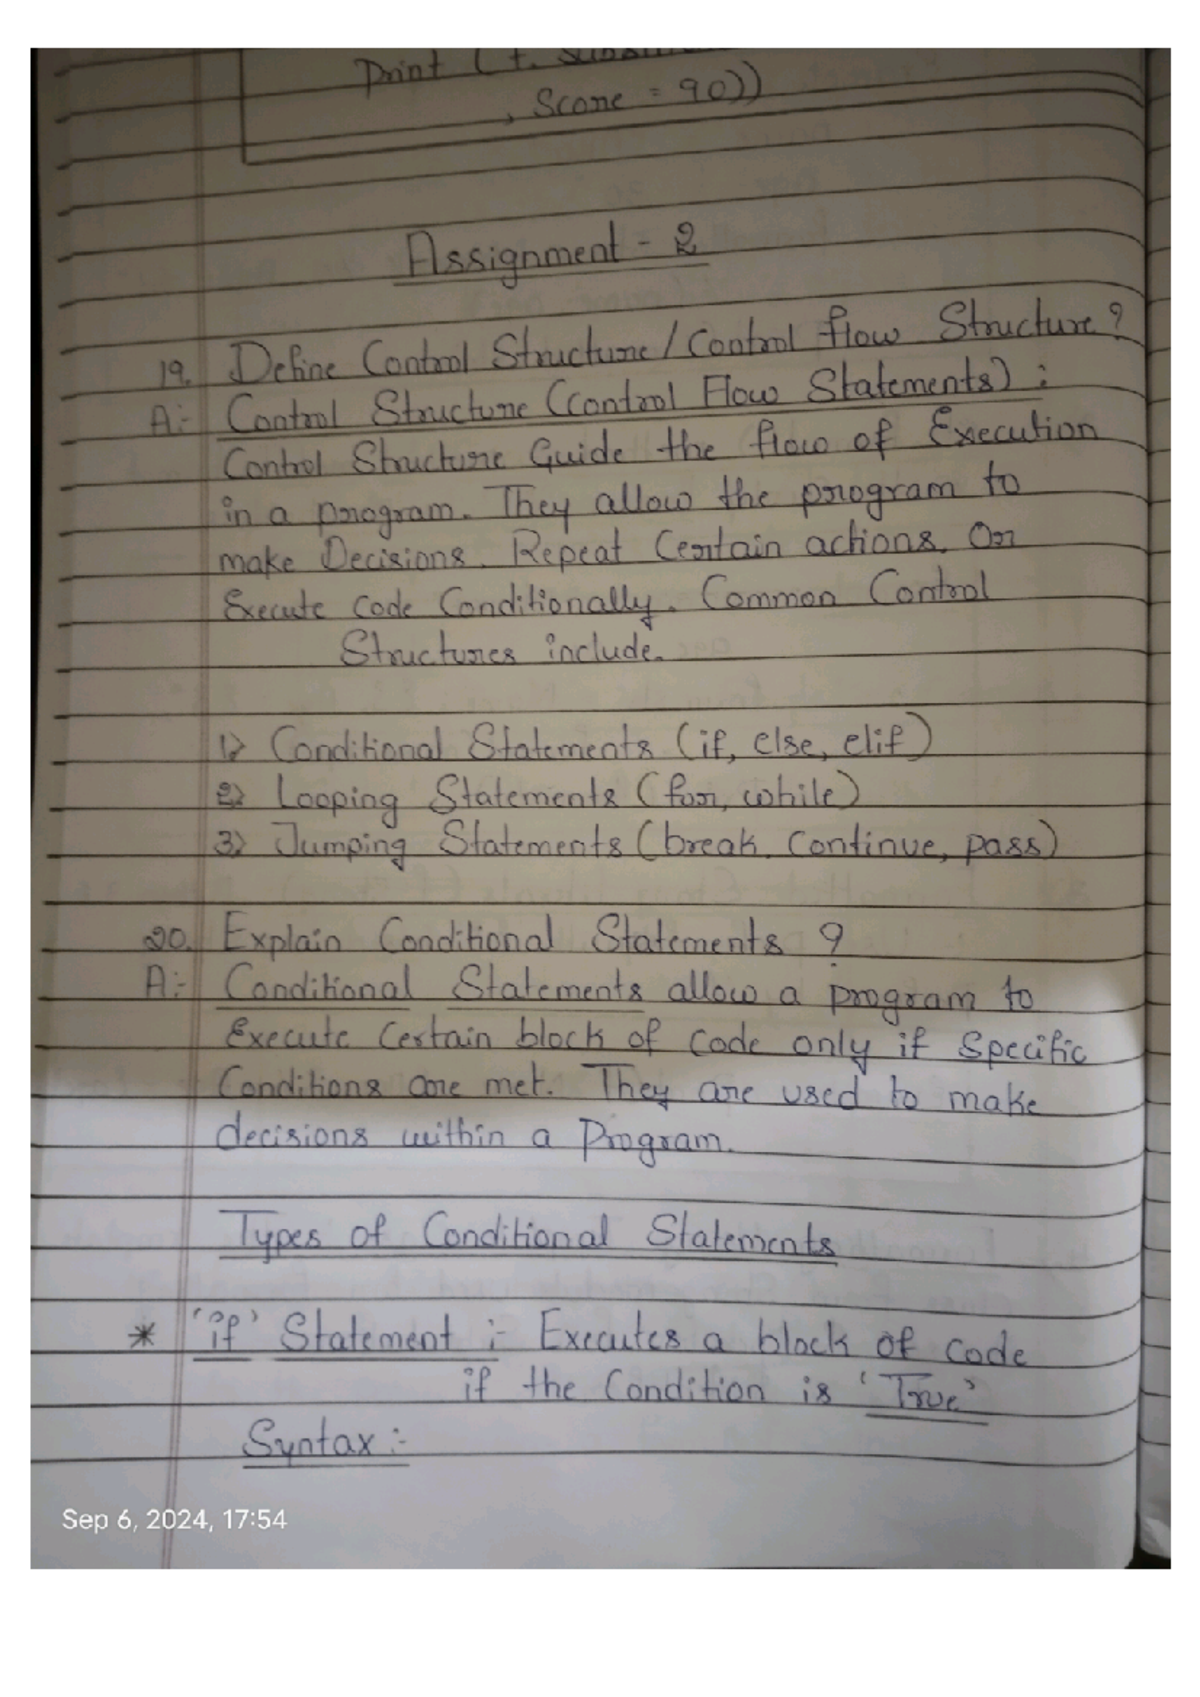 Print (t.
, Score = 90))
Assignment - 2
19. Define Control Structure / Control flow Structure?
A:- Control Structure (Control Flow Statements) :
Control Structure Guide the flow of Execution
in a program. They allow the program to
make Decisions. Repeat Certain actions. Or
Execute code Conditionally. Common Control
Structures include.
1) Conditional Statements (if, else, elif)
2) Looping Statements (for, while)
3) Jumping Statements (break. Continue, pass)
20. Explain Conditional Statements ?
A:- Conditional Statements allow a program to
Execute Certain block of Code only if Specific
Conditions are met. They are used to make
decisions within a Program.
Types of Conditional Statements
* 'if' Statement :- Executes a block of code
if the Condition is 'True'
Syntax :-
Sep 6, 2024, 17:54